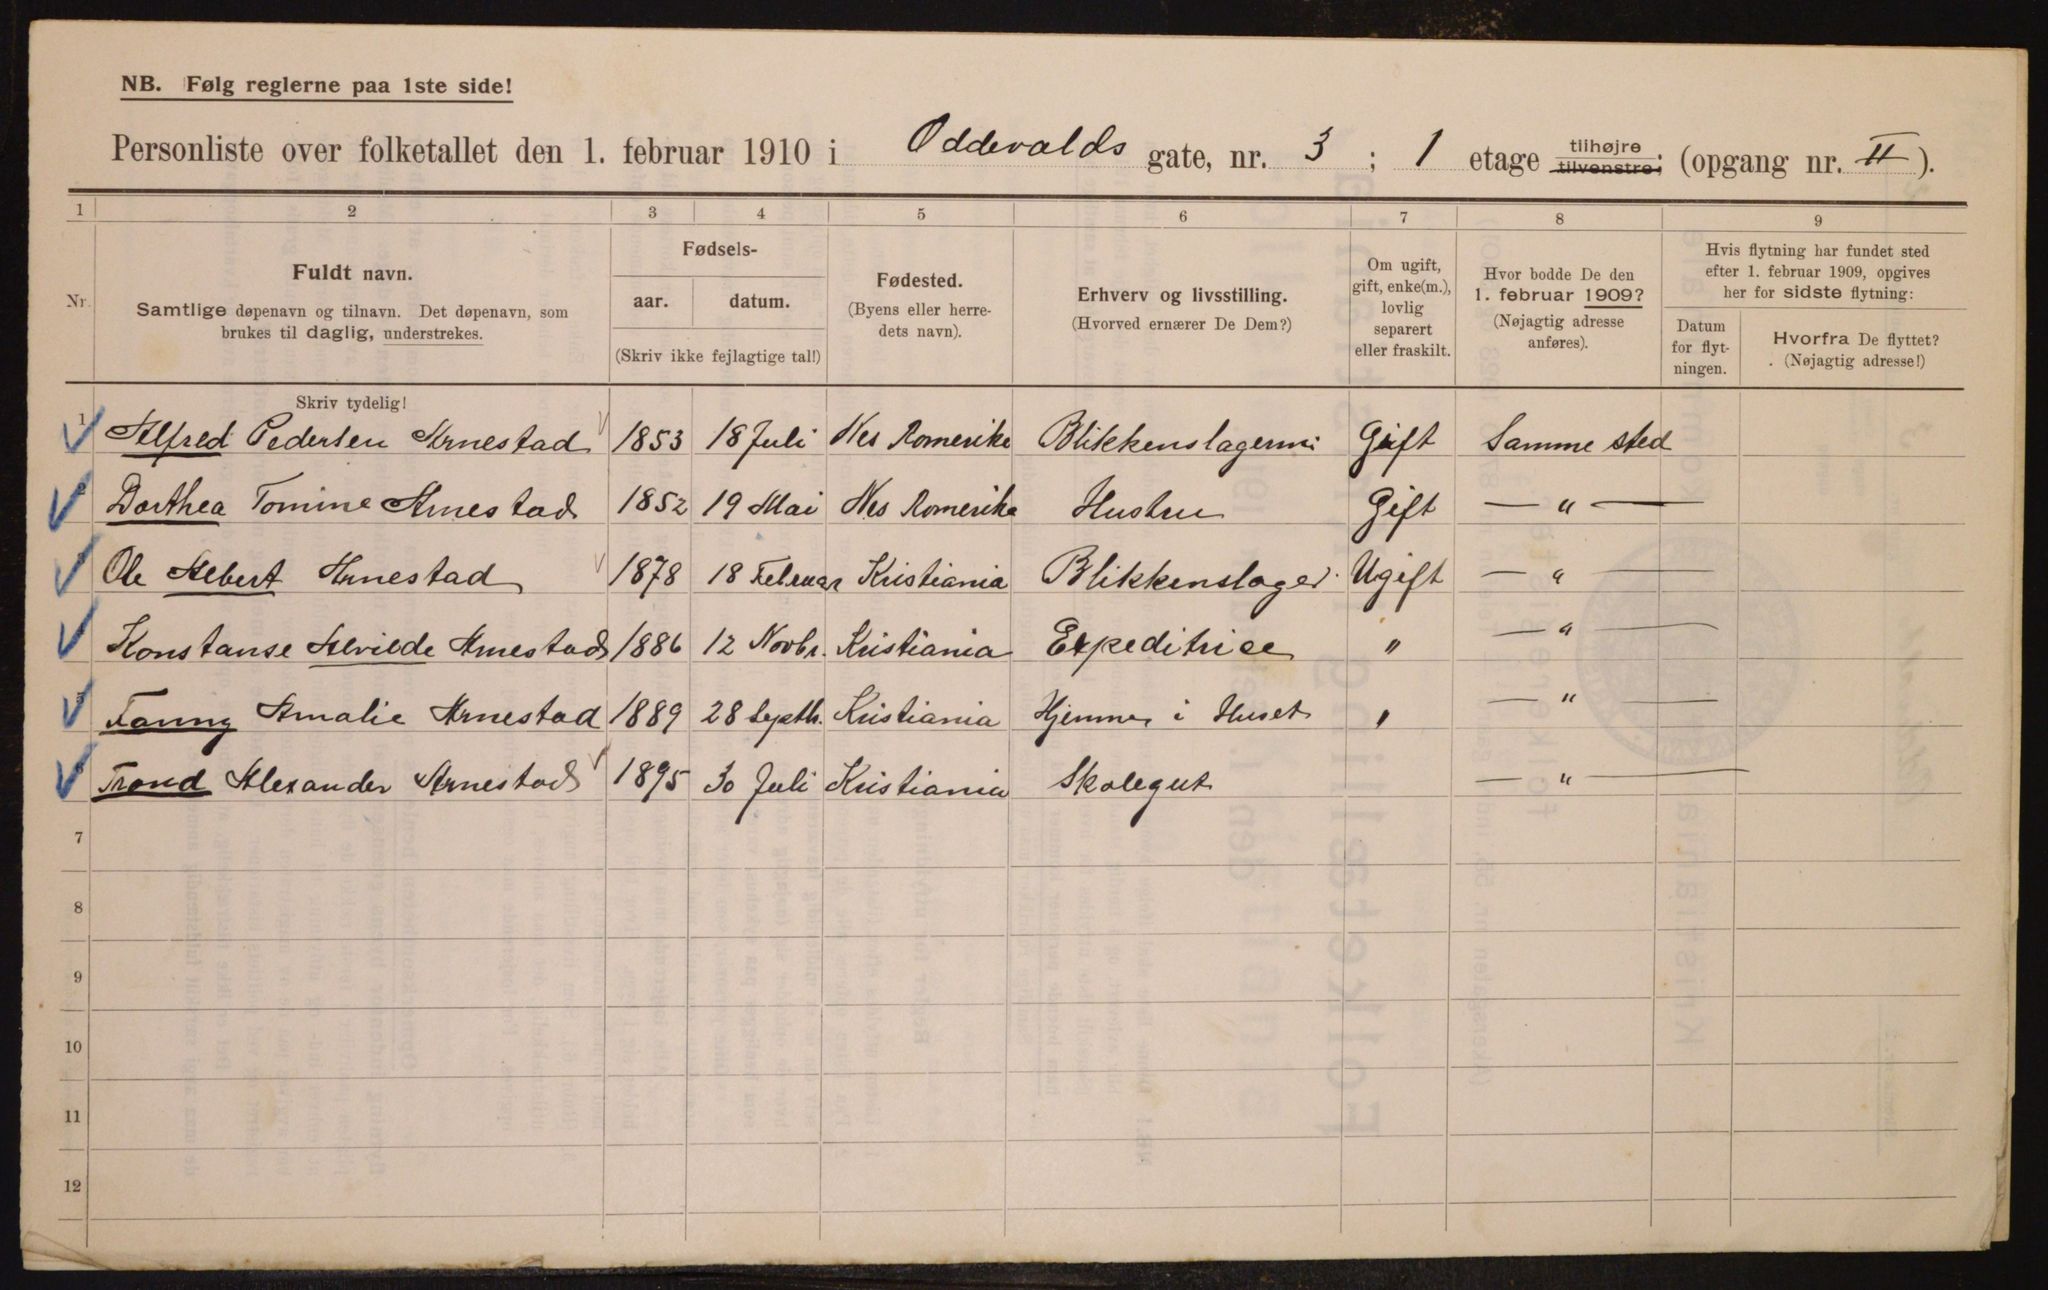 NB. Følg reglerne paa 1ste side!
Personliste over folketallet den 1. februar 1910 i Oddevalds gate, nr. 3; 1 etage tilhøjre tilvenstre; (opgang nr. II).
1 2 3 4 5 6 7 8 9
Nr.
Fuldt navn.
Samtlige døpenavn og tilnavn. Det døpenavn, som
brukes til daglig, understrekes.
Fødsels-
aar. datum.
(Skriv ikke fejlagtige tal!)
Fødested.
(Byens eller herre-
dets navn).
Erhverv og livsstilling.
(Hvorved ernærer De Dem?)
Om ugift,
gift, enke(m.),
lovlig
separert
eller fraskilt.
Hvor bodde De den
1. februar 1909?
(Nøjagtig adresse
anføres).
Hvis flytning har fundet sted
efter 1. februar 1909, opgives
her for sidste flytning:
Datum
for flyt-
ningen.
Hvorfra De flyttet?
(Nøjagtig adresse!)
Skriv tydelig!
1 Alfred Pedersen Arnestad 1853 18 Juli Nes Romerike Blikkenslagerm: Gift Samme sted
2 Dorthea Tomine Arnestad 1852 19 Mai Nes Romerike Hustru Gift — " —
3 Ole Albert Arnestad 1878 18 Februar Kristiania Blikkenslager. Ugift — " —
4 Konstanse Alvilde Arnestad 1886 12 Novbr. Kristiania Expeditrice " — " —
5 Fanny Amalie Arnestad 1889 28 Septb. Kristiania Hjemme i Huset " — " —
6 Trond Alexander Arnestad 1895 30 Juli Kristiania Skolegut — " —
7
8
9
10
11
12